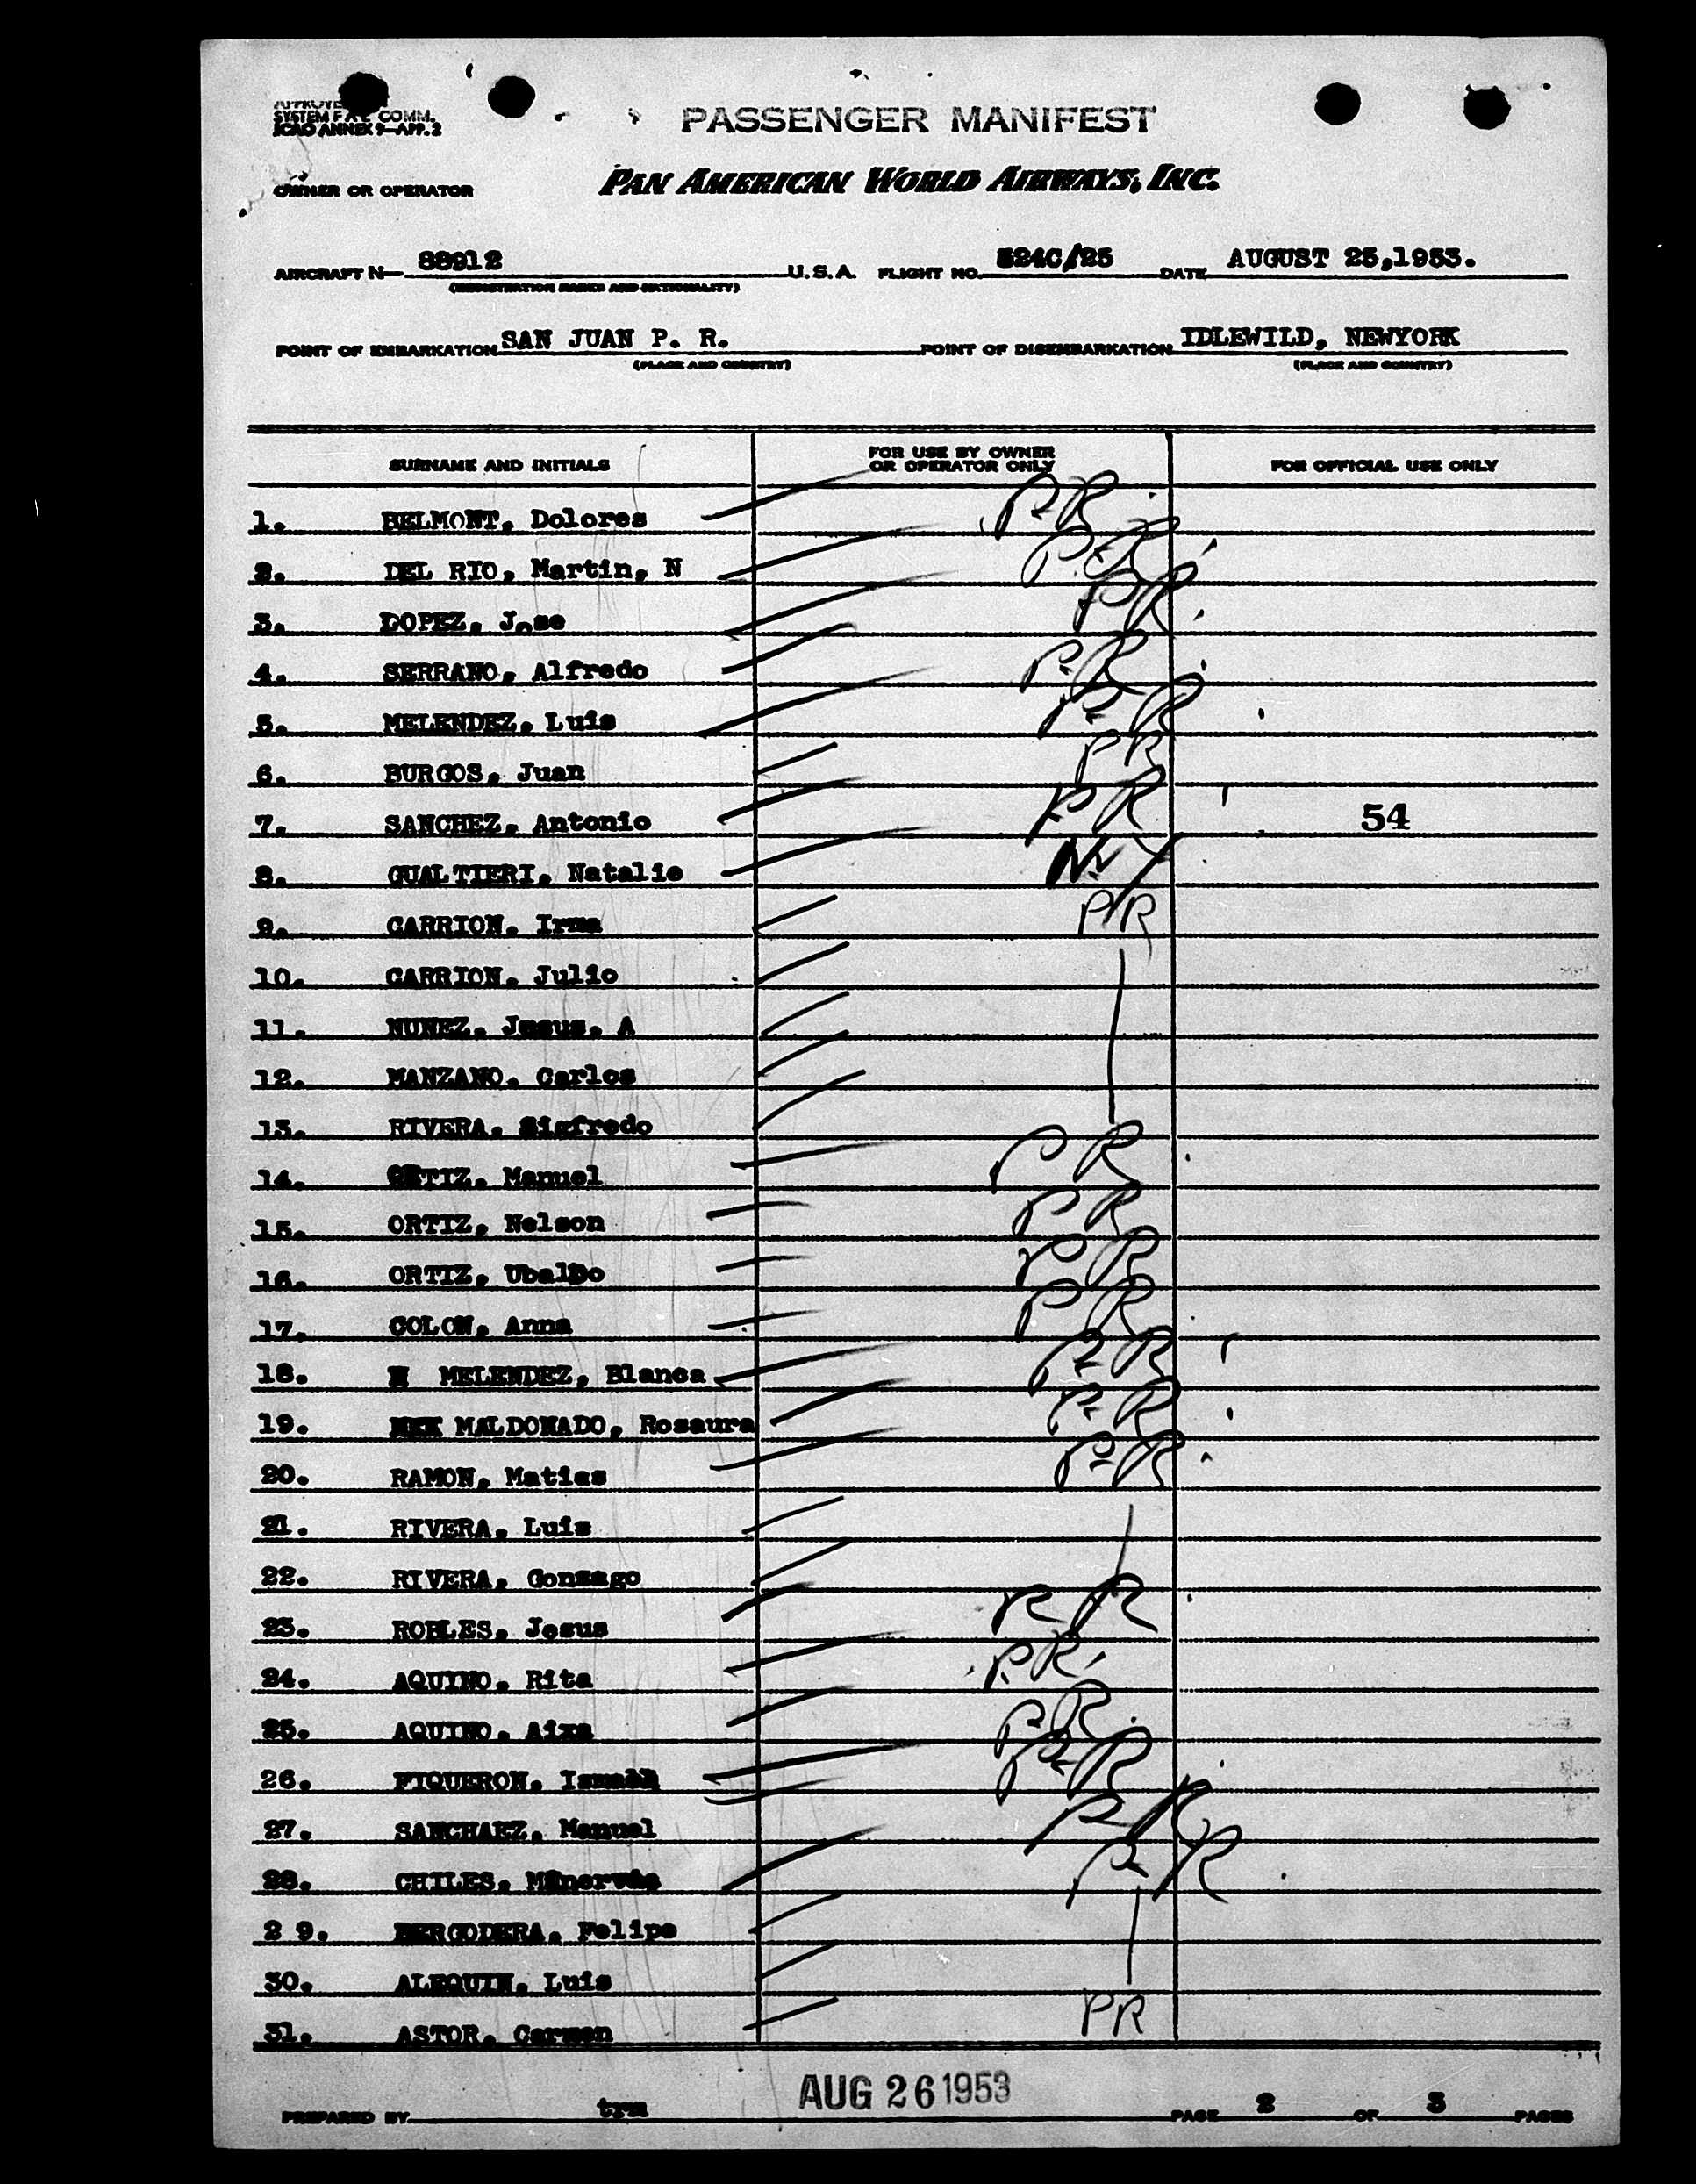 SYSTEM F A L COMM.
ICAO ANNEX 9—APP. 2
PASSENGER MANIFEST
OWNER OR OPERATOR PAN AMERICAN WORLD AIRWAYS, INC.
AIRCRAFT N— 88912 U.S.A. FLIGHT NO. 524C/25 DATE AUGUST 25,1953.
(REGISTRATION MARKS AND NATIONALITY)
POINT OF EMBARKATION SAN JUAN P. R. POINT OF DISEMBARKATION IDLEWILD, NEWYORK
(PLACE AND COUNTRY) (PLACE AND COUNTRY)
SURNAME AND INITIALS FOR USE BY OWNER OR OPERATOR ONLY FOR OFFICIAL USE ONLY
1. BELMONT, Dolores PR
2. DEL RIO, Martin, N PR
3. LOPEZ, Jose PR
4. SERRANO, Alfredo PR
5. MELENDEZ, Luis PR
6. BURGOS, Juan PR
7. SANCHEZ, Antonio PR 54
8. GUALTIERI, Natalie NY
9. CARRION, Irma PR
10. CARRION, Julio
11. NUNEZ, Jesus, A
12. MANZANO, Carlos
13. RIVERA, Sigfredo
14. ORTIZ, Manuel PR
15. ORTIZ, Nelson PR
16. ORTIZ, UbalDo PR
17. COLON, Anna PR
18. MELENDEZ, Blanca PR
19. MALDONADO, Rosaura PR
20. RAMON, Matias PR
21. RIVERA, Luis
22. RIVERA, Gonzago
23. ROBLES, Jesus PR
24. AQUINO, Rita PR
25. AQUINO, Aixa PR
26. FIQUERON, PR
27. SANCHAEZ, Manuel PR
28. CHILES, PR
2 9. Felipe
30. ALEQUIN, Luis
31. ASTOR, Carmen PR
PREPARED BY trm AUG 26 1953 PAGE 2 OF 3 PAGES